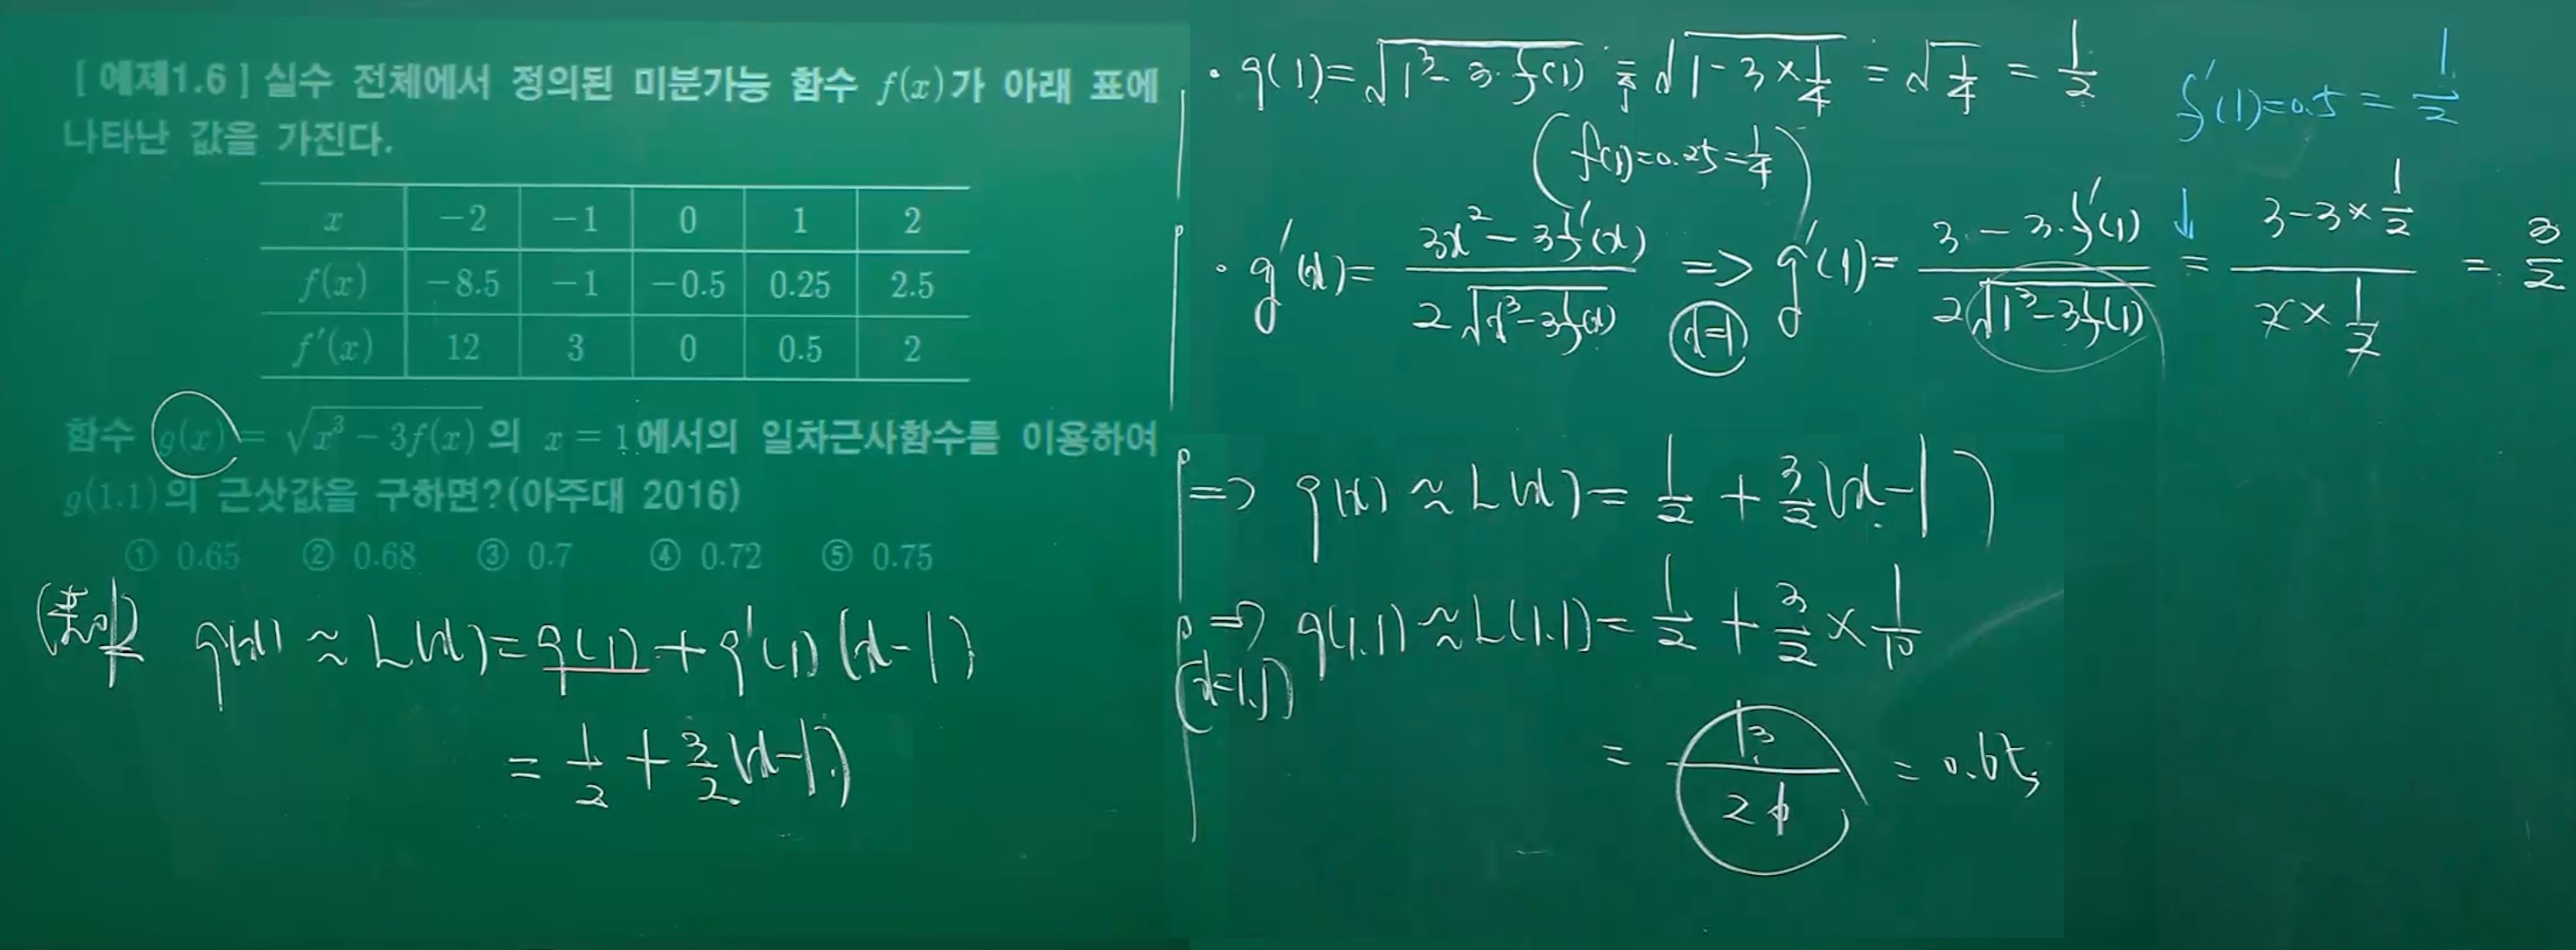 [ 예제1.6 ] 실수 전체에서 정의된 미분가능 함수 f(x)가 아래 표에
나타난 값을 가진다.
x −2 −1 0 1 2
f(x) −8.5 −1 −0.5 0.25 2.5
f′(x) 12 3 0 0.5 2
함수 g(x) = √(x³ − 3f(x)) 의 x = 1에서의 일차근사함수를 이용하여
g(1.1)의 근삿값을 구하면?(아주대 2016)
① 0.65 ② 0.68 ③ 0.7 ④ 0.72 ⑤ 0.75
(풀이) g(x) ≈ L(x) = g(1) + g′(1)(x−1)
= 1/2 + 3/2(x−1)
· g(1) = √(1³ − 3·f(1)) = √(1 − 3×1/4) = √(1/4) = 1/2
(f(1)=0.25=1/4)
f′(1)=0.5=1/2
· g′(x) = (3x² − 3f′(x)) / (2√(x³−3f(x))) ⇒ (x=1) g′(1) = (3 − 3·f′(1)) / (2√(1³−3f(1))) ↓ = (3−3×1/2) / (2×1/2) = 3/2
⇒ g(x) ≈ L(x) = 1/2 + 3/2(x−1)
⇒ (x=1.1) g(1.1) ≈ L(1.1) = 1/2 + 3/2 × 1/10
= 13/20 = 0.65